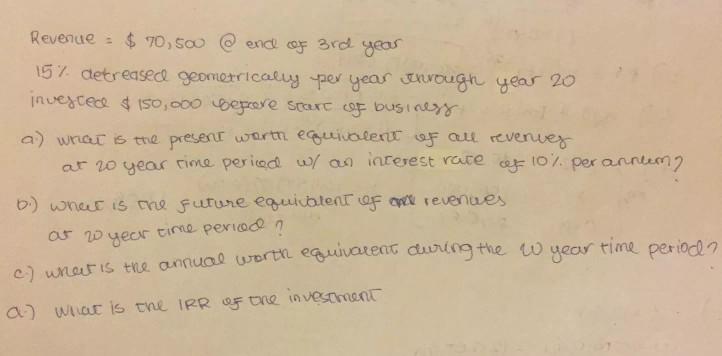 Revenue = $ 70,500 @ end of 3rd year
15% decreased geometrically per year through year 20
invested $ 150,000 before start of business
a.) what is the present worth equivalent of all revenues
at 20 year time period w/ an interest rate of 10% per annum?
b.) what is the future equivalent of revenues
at 20 year time period ?
c.) what is the annual worth equivalent during the 20 year time period?
d.) what is the IRR of the investment